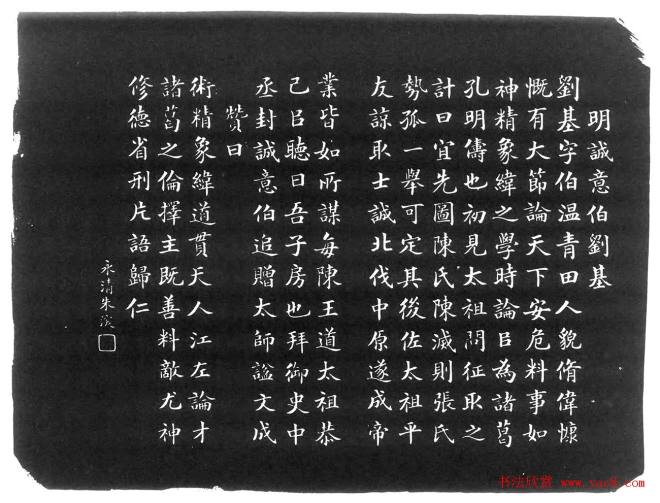 明誠意伯劉基
劉基字伯溫青田人貌脩偉慷
慨有大節論天下安危料事如
神精象緯之學時論㠯為諸葛
孔明儔也初見太祖問征取之
計曰宜先圖陳氏陳滅則張氏
勢孤一舉可定其後佐太祖平
友諒取士誠北伐中原遂成帝
業皆如所謀每陳王道太祖恭
己㠯聽曰吾子房也拜御史中
丞封誠意伯追贈太師謚文成
贊曰
術精象緯道貫天人江左論才
諸葛之倫擇主既善料敵尤神
修德省刑片語歸仁
永清朱
书法欣赏 www.yac8.com